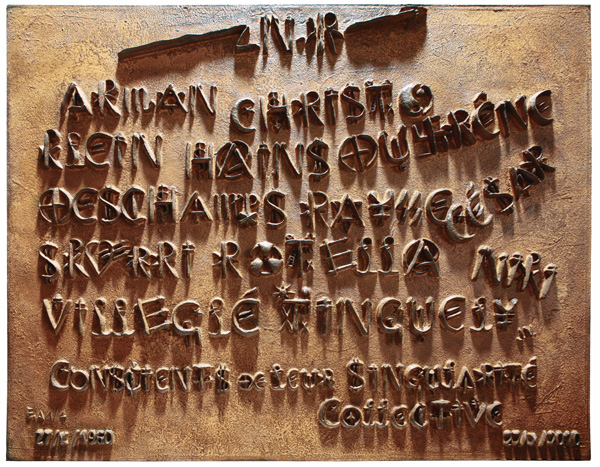 ARMAN CHRISTO
KLEIN HAINS DUFRÊNE
DESCHAMPS RAYSSE CÉSAR
SPOERRI ROTELLA NIKI
VILLEGLÉ TINGUELY
CONSCIENTS DE LEUR SINGULARITÉ
COLLECTIVE
27/10/1960